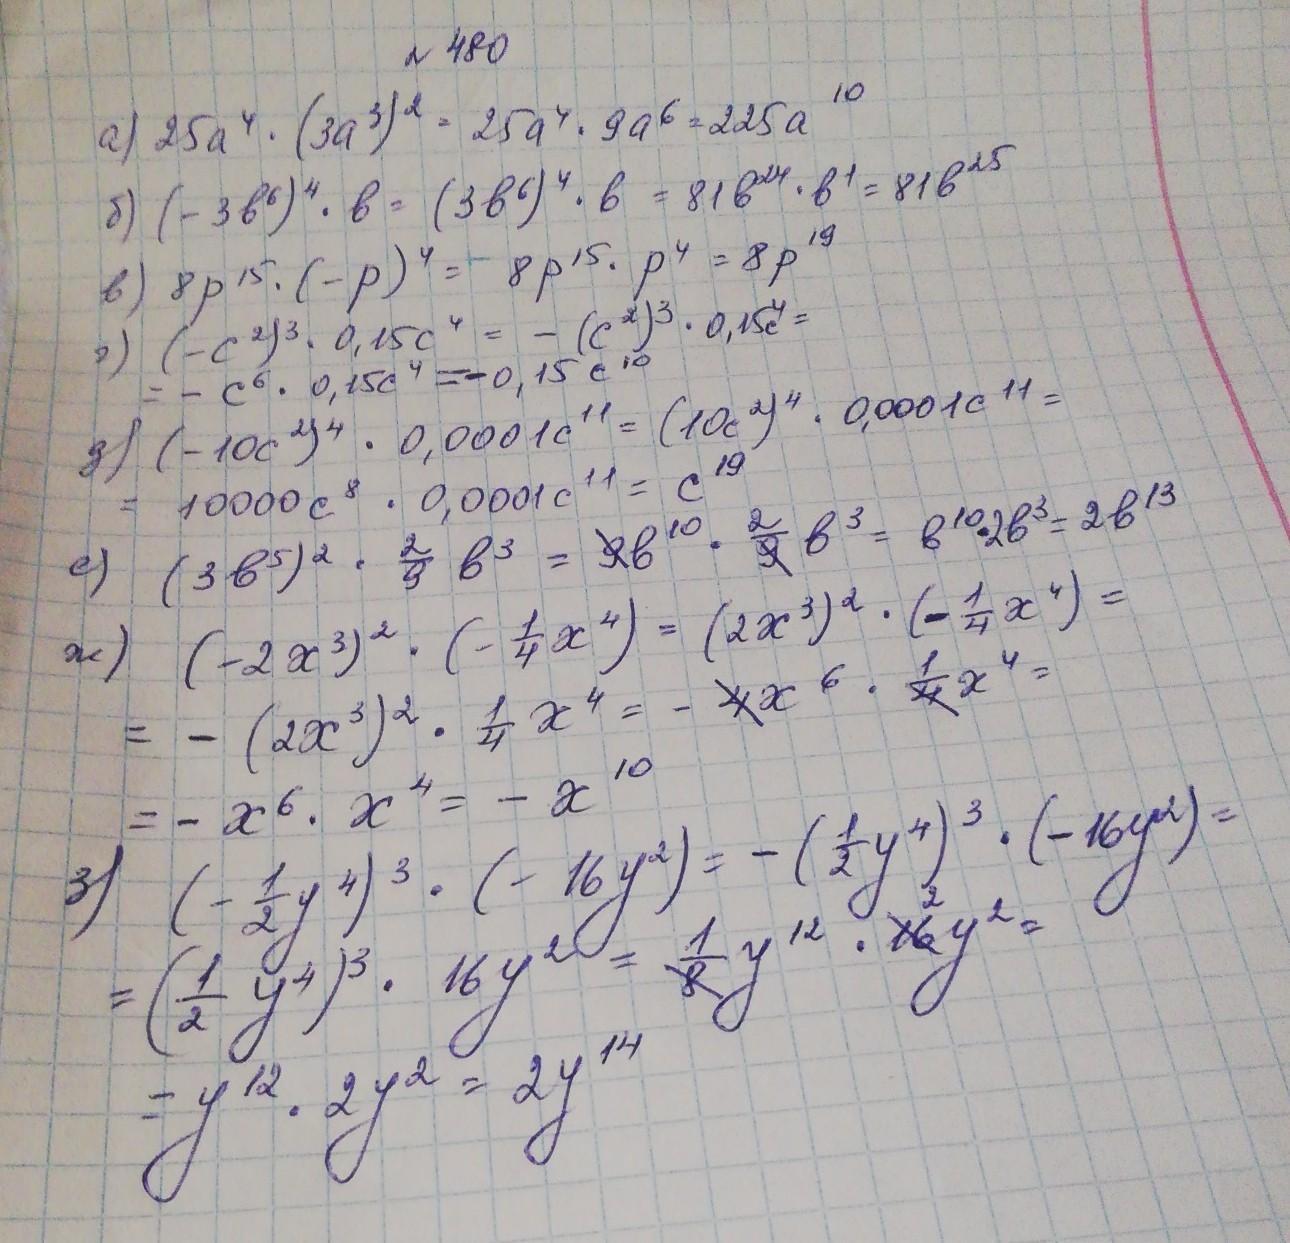 № 480
а) 25a⁴ · (3a³)² = 25a⁴ · 9a⁶ = 225a¹⁰
б) (-3b⁶)⁴ · b = (3b⁶)⁴ · b = 81b²⁴ · b¹ = 81b²⁵
в) 8p¹⁵ · (-p)⁴ = 8p¹⁵ · p⁴ = 8p¹⁹
г) (-c²)³ · 0,15c⁴ = -(c²)³ · 0,15c⁴ =
= -c⁶ · 0,15c⁴ = -0,15c¹⁰
д) (-10c²)⁴ · 0,0001c¹¹ = (10c²)⁴ · 0,0001c¹¹ =
= 10000c⁸ · 0,0001c¹¹ = c¹⁹
е) (3b⁵)² · 2/9 b³ = 9b¹⁰ · 2/9 b³ = b¹⁰ · 2b³ = 2b¹³
ж) (-2x³)² · (-1/4 x⁴) = (2x³)² · (-1/4 x⁴) =
= -(2x³)² · 1/4 x⁴ = -4x⁶ · 1/4 x⁴ =
= -x⁶ · x⁴ = -x¹⁰
з) (-1/2 y⁴)³ · (-16y²) = -(1/2 y⁴)³ · (-16y²) =
= (1/2 y⁴)³ · 16y² = 1/8 y¹² · 16 2 y² =
= y¹² · 2y² = 2y¹⁴